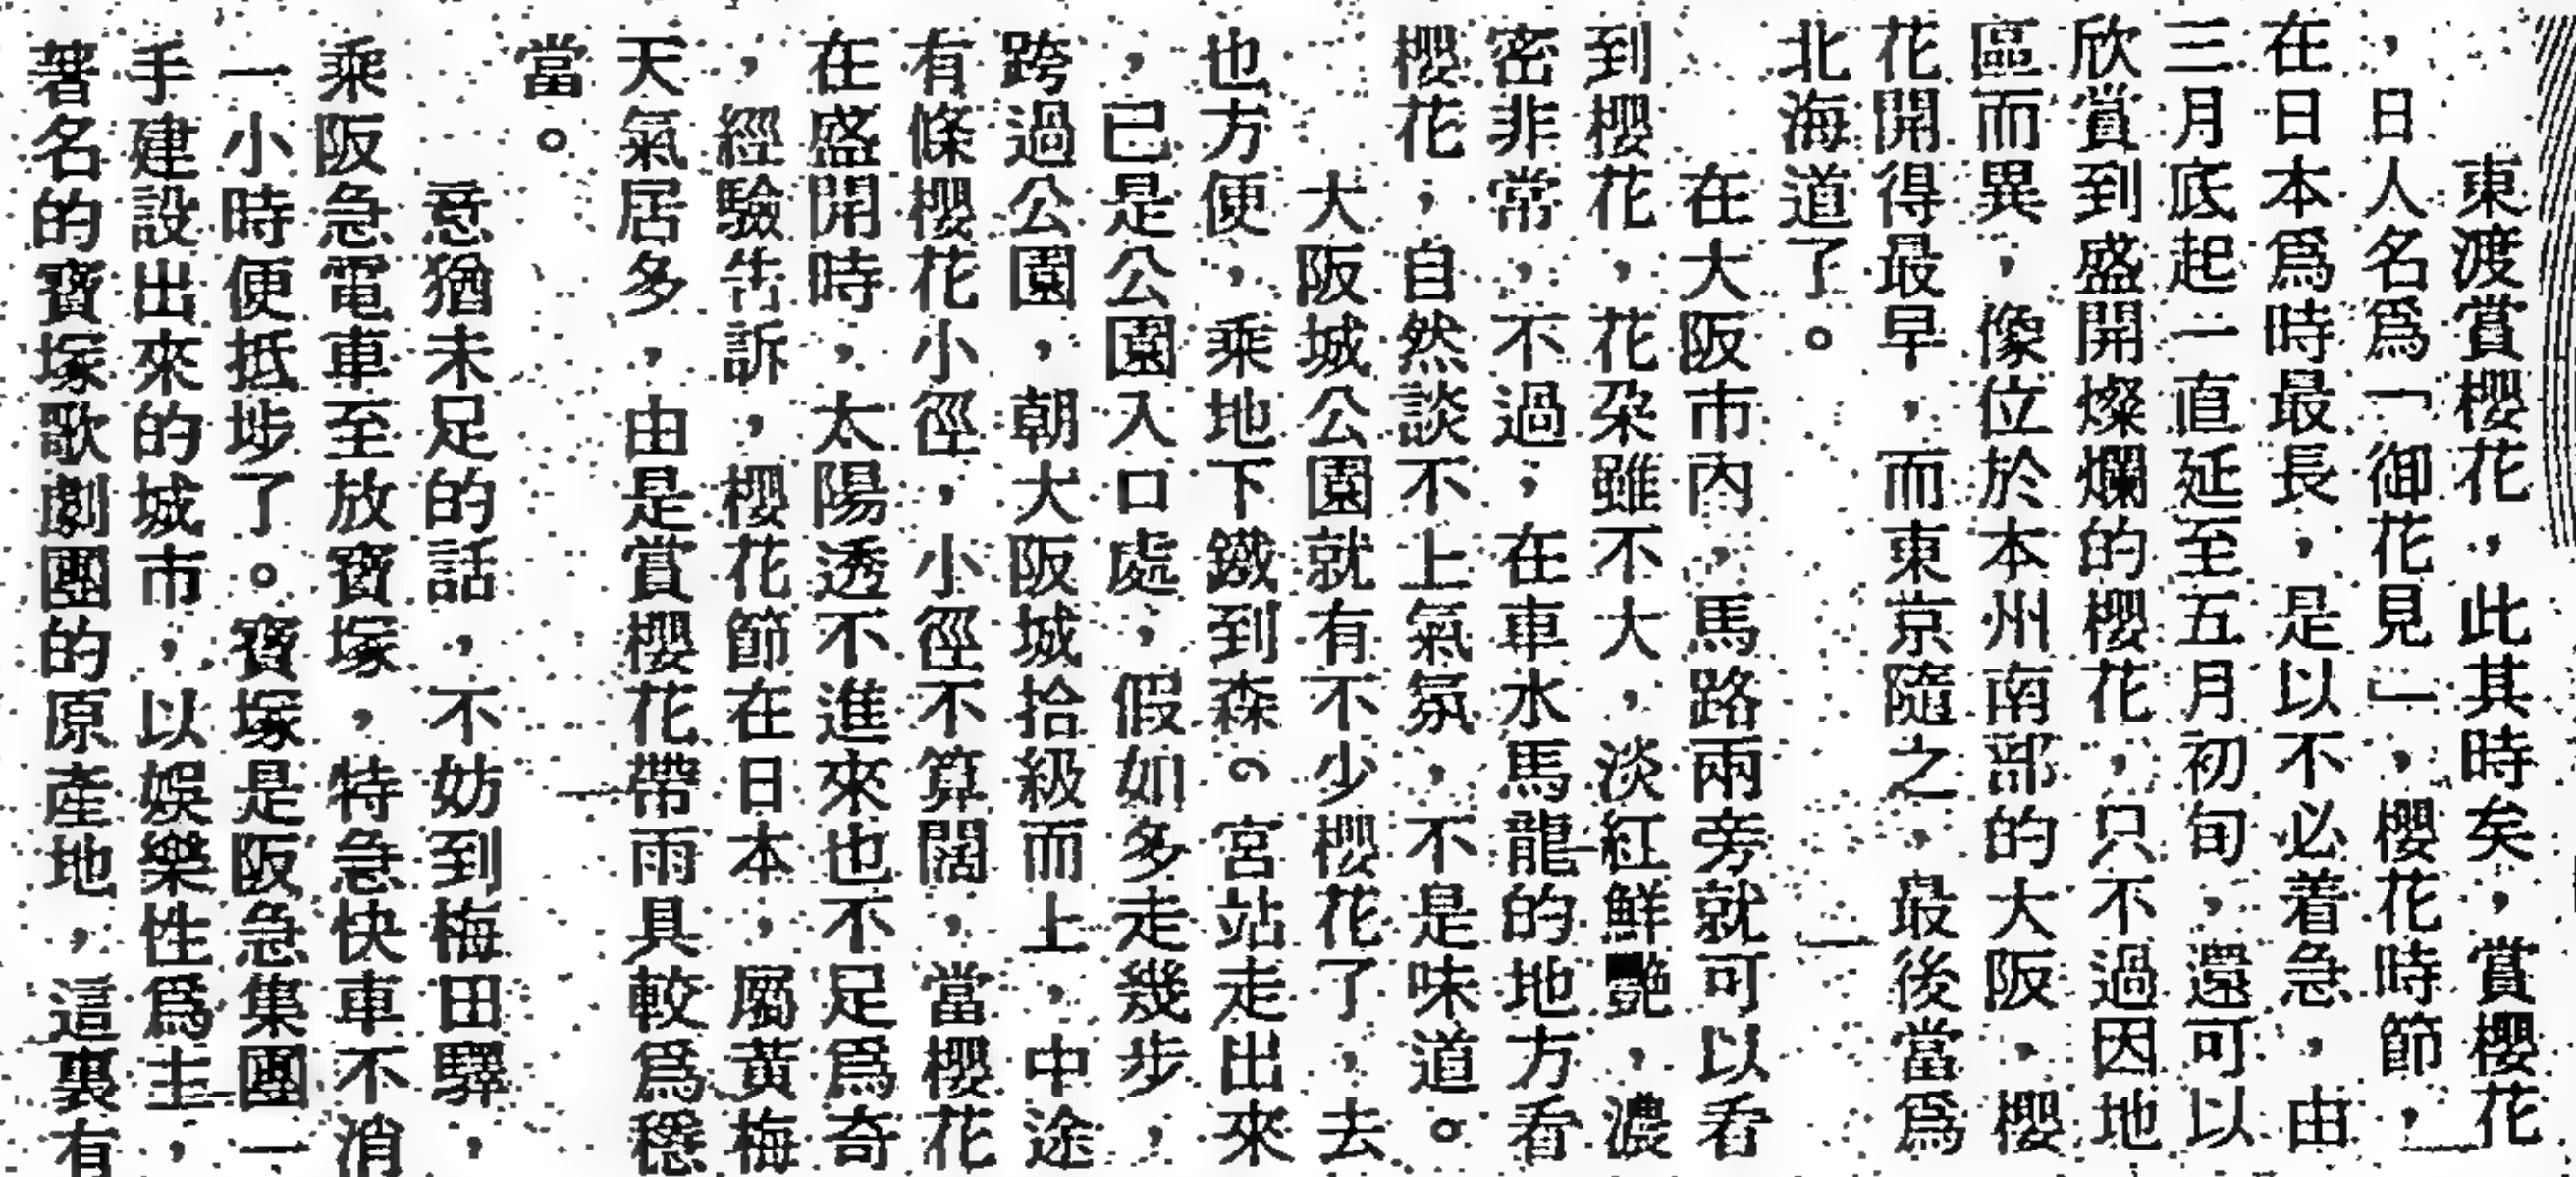 東渡賞櫻花，此其時矣，賞櫻花
，日人名爲「御花見」，櫻花時節，
在日本爲時最長，是以不必着急，由
三月底起一直延至五月初旬，還可以
欣賞到盛開燦爛的櫻花，只不過因地
區而異，像位於本州南部的大阪，櫻
花開得最早，而東京隨之，最後當爲
北海道了。
在大阪市內，馬路兩旁就可以看
到櫻花，花朶雖不大，淡紅鮮艷，濃
密非常，不過，在車水馬龍的地方看
櫻花，自然談不上氣氛，不是味道。
大阪城公園就有不少櫻花了，去
也方便，乘地下鐵到森。宮站走出來
，已是公園入口處，假如多走幾步，
跨過公園，朝大阪城拾級而上，中途
有條櫻花小徑，小徑不算闊，當櫻花
在盛開時，太陽透不進來也不足爲奇
，經驗告訴，櫻花節在日本，屬黃梅
天氣居多，由是賞櫻花帶雨具較爲穩
當。
意猶未足的話，不妨到梅田驛，
乘阪急電車至放寶塚，特急快車不消
一小時便抵埗了。寶塚是阪急集團一
手建設出來的城市，以娛樂性爲主，
著名的寶塚歌劇團的原產地，這裏有